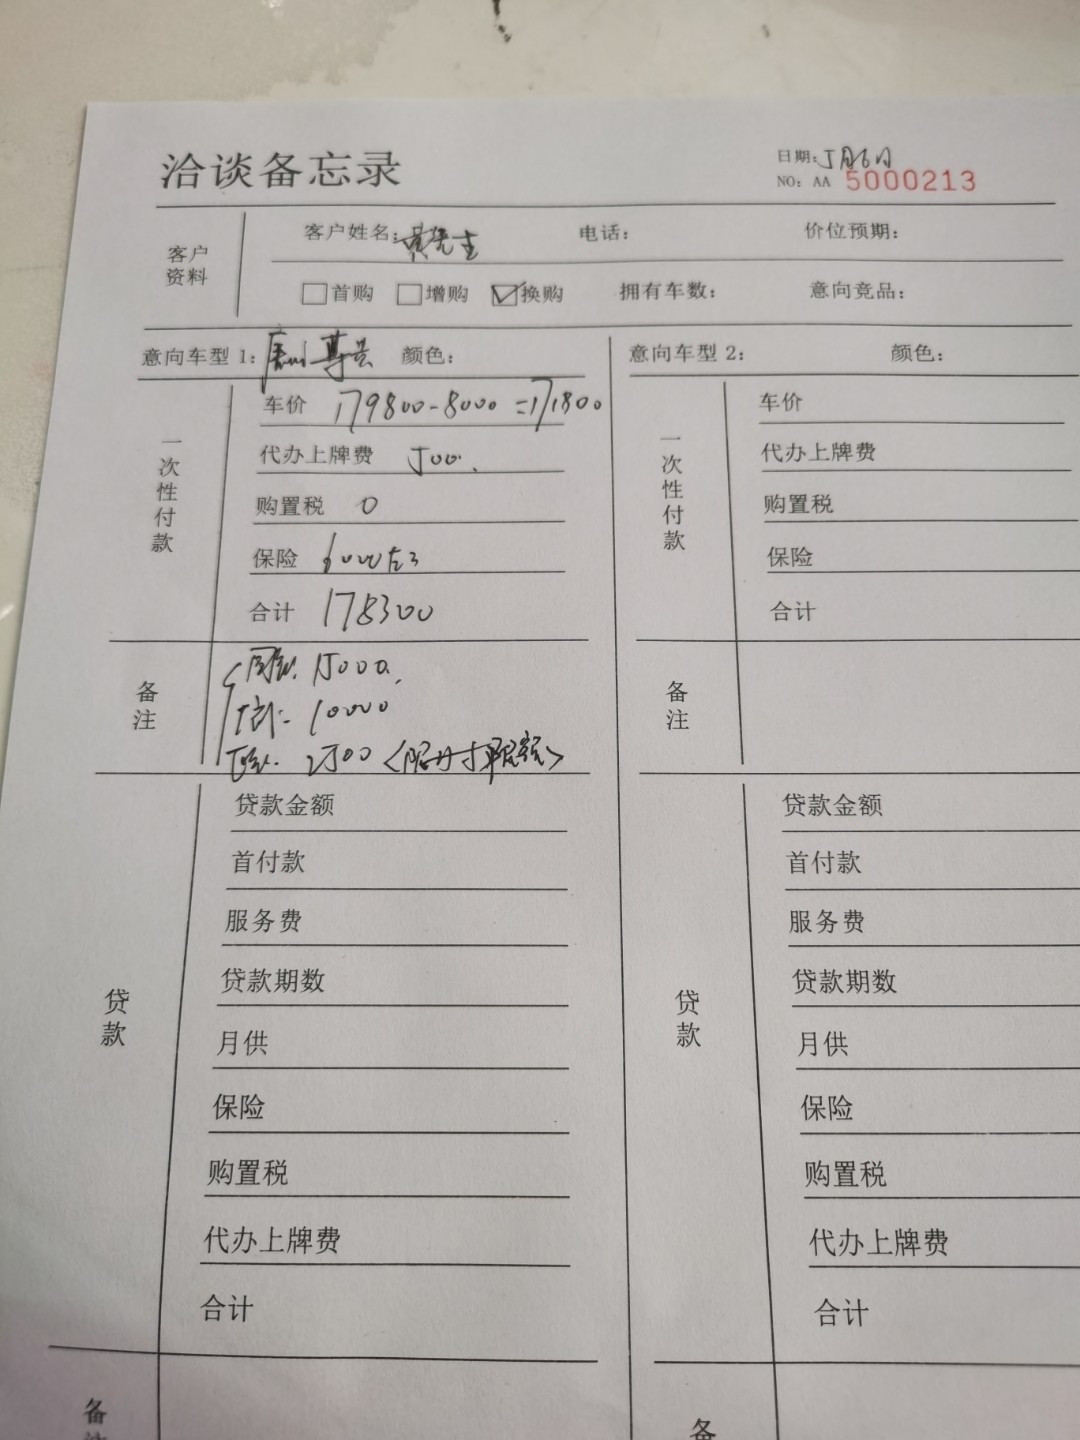 洽谈备忘录
日期:5月6日
NO: AA 5000213
客户资料
客户姓名: 先生 电话: 价位预期:
首购 增购 换购 拥有车数: 意向竞品:
意向车型 1: 颜色:
一次性付款
车价 179800-8000=171800
代办上牌费 500.
购置税 0
保险 6000左右
合计 178300
备注
国家: 15000.
10000
2500
贷款
贷款金额
首付款
服务费
贷款期数
月供
保险
购置税
代办上牌费
合计
备注
意向车型 2: 颜色:
一次性付款
车价
代办上牌费
购置税
保险
合计
备注
贷款
贷款金额
首付款
服务费
贷款期数
月供
保险
购置税
代办上牌费
合计
备